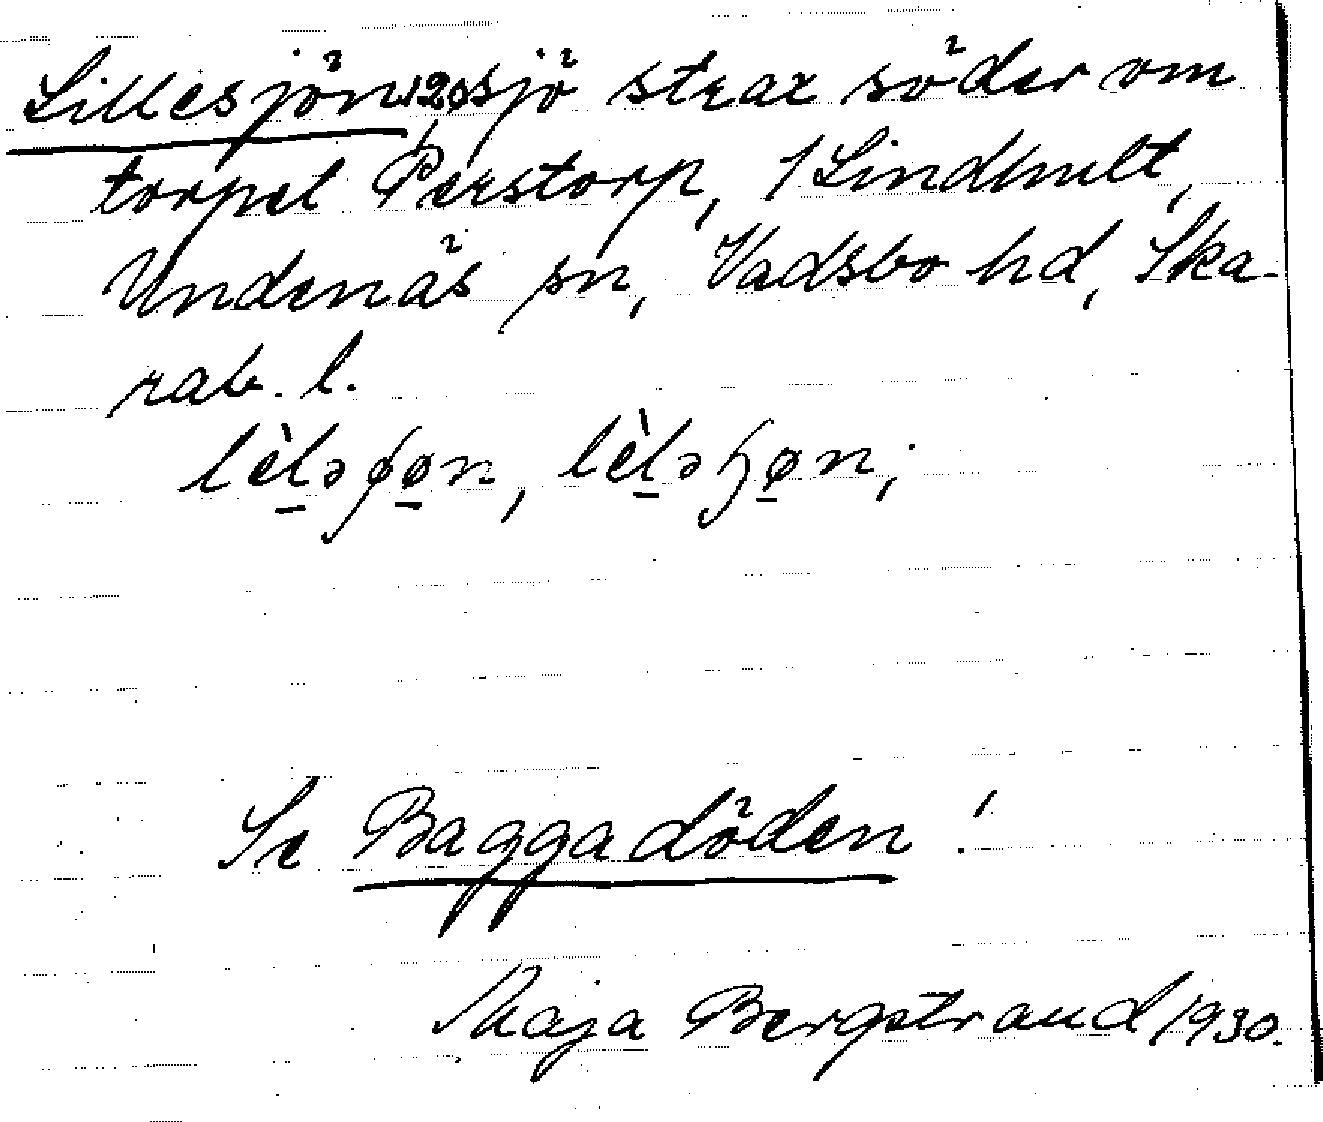 Lillesjön, 120, sjö strax söder om
torpet Perstorp, 1 Lindhult,
Undenäs sn, Vadsbo hd, Ska-
rab. l.
Se Baggadöden!
Maja Bergstrand 1930.